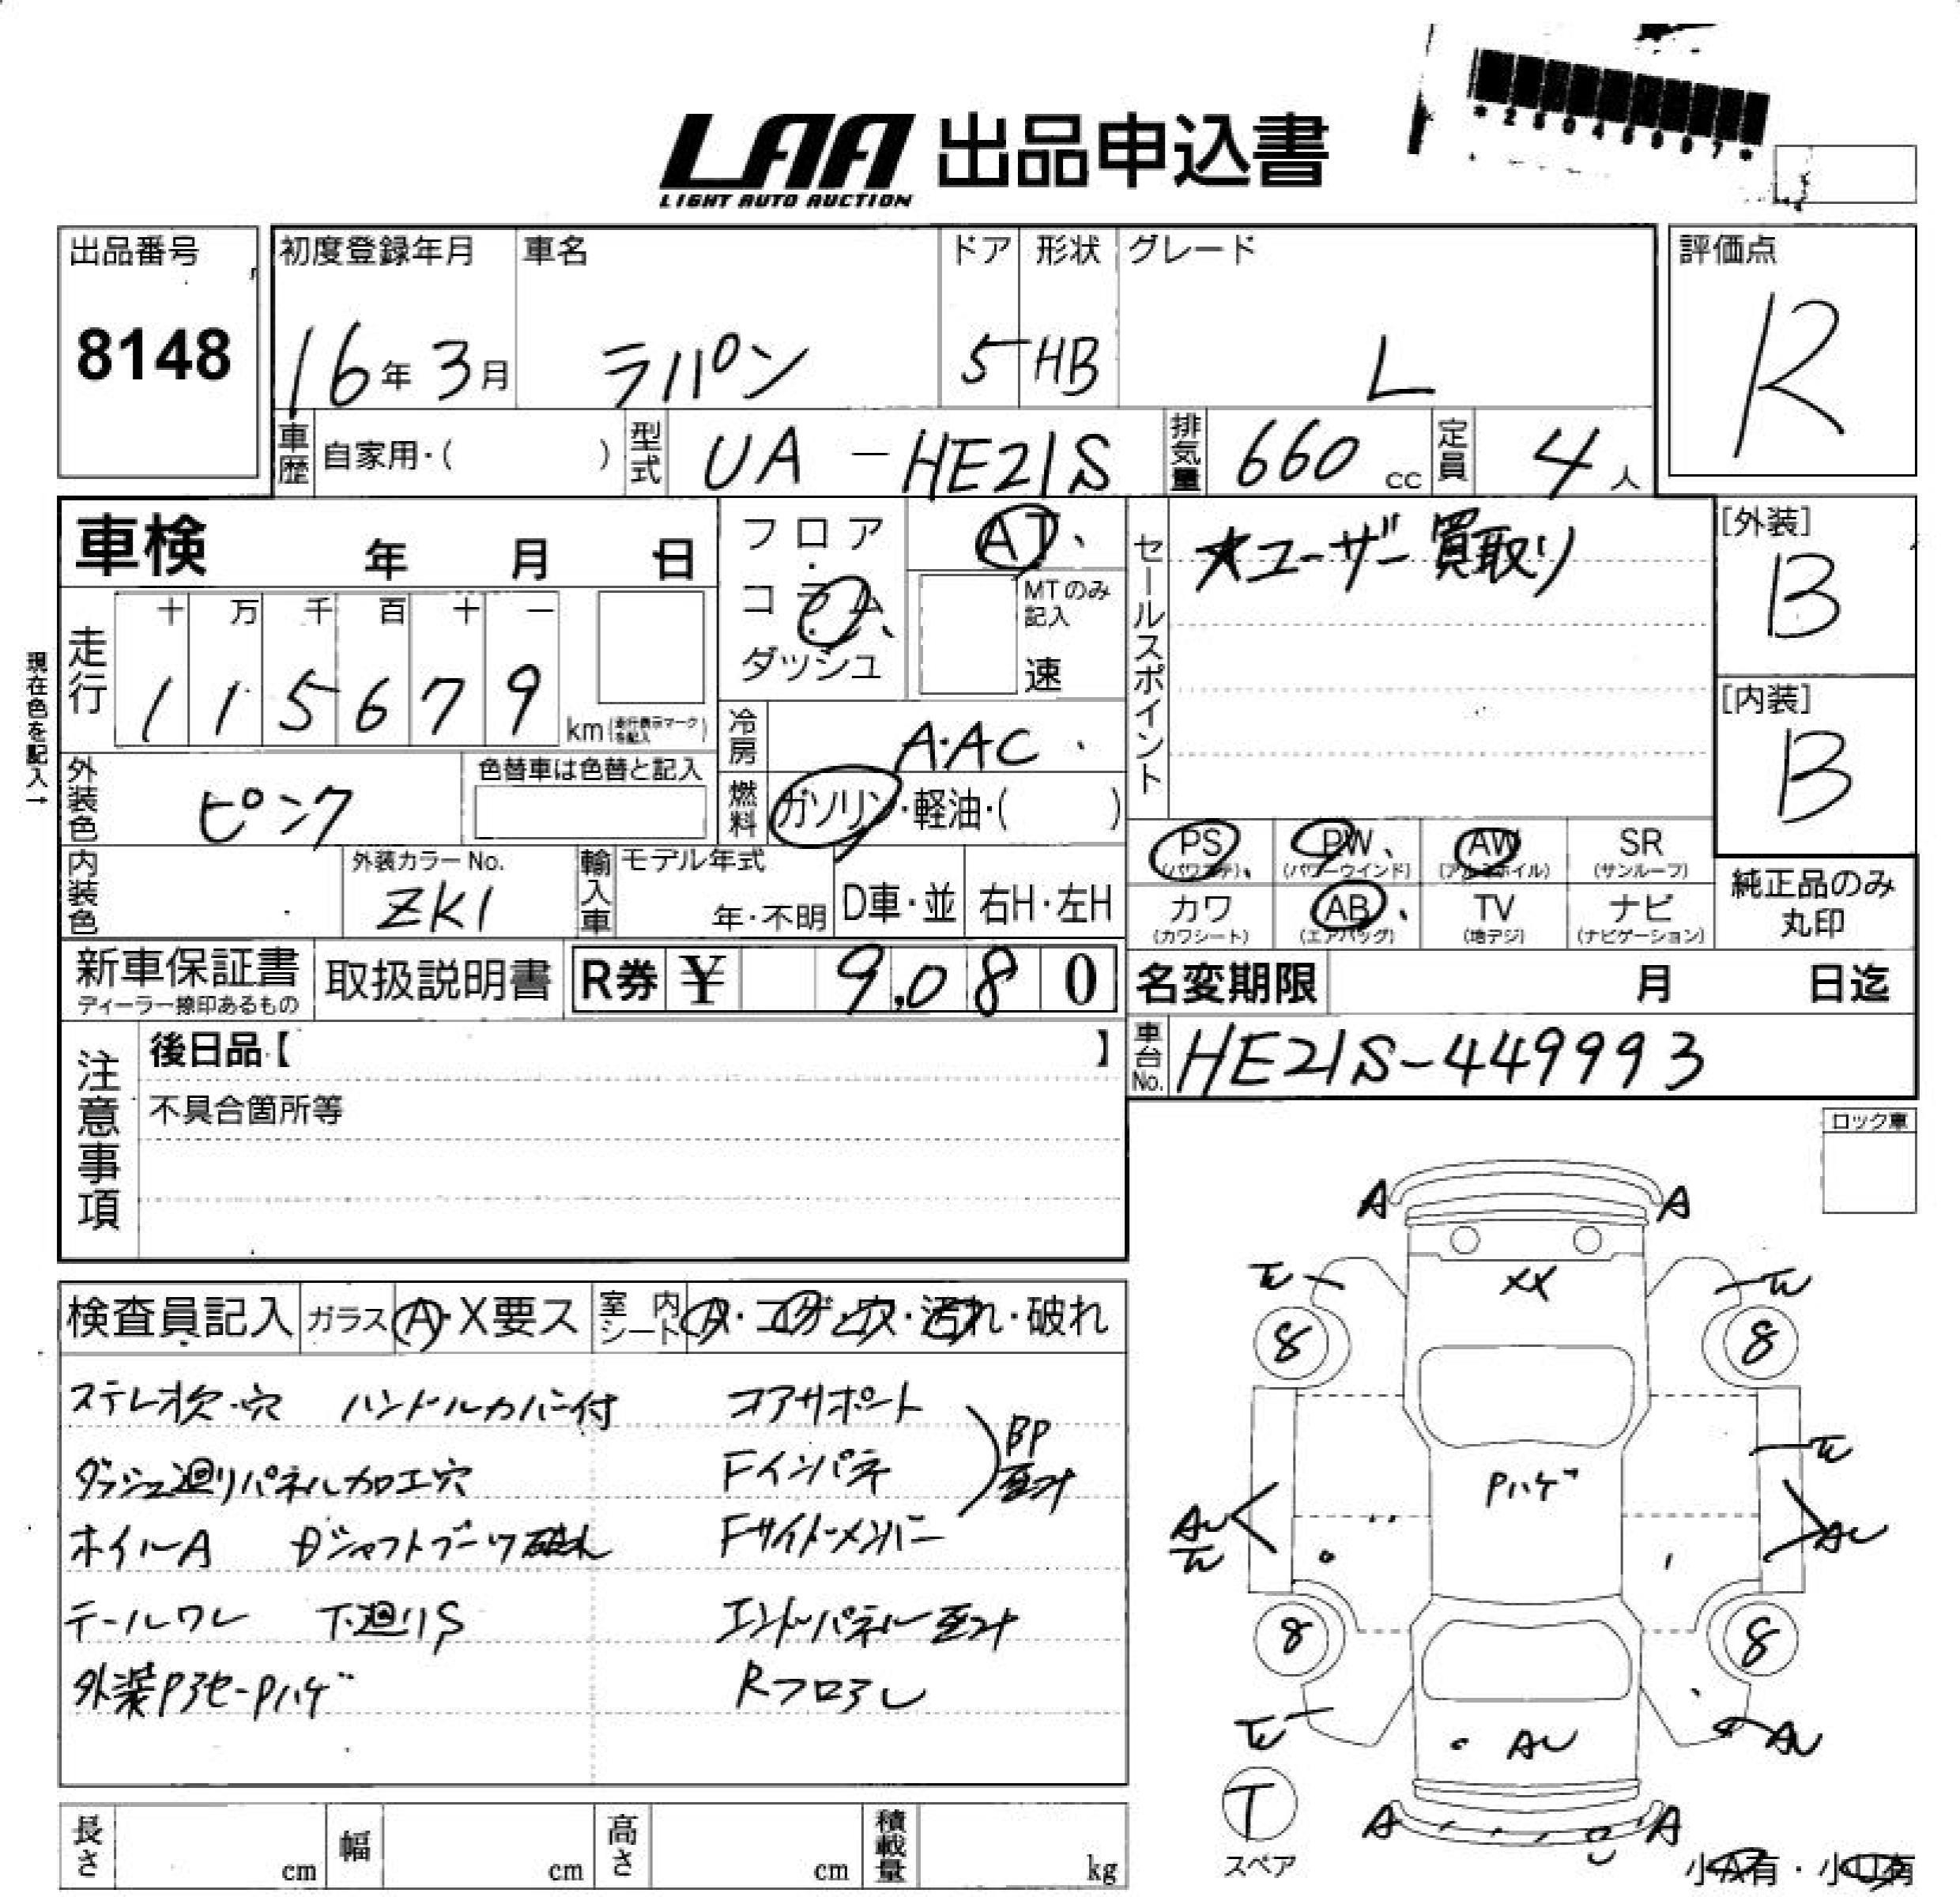 LAA 出品申込書
LIGHT AUTO AUCTION
出品番号
8148
初度登録年月
16年 3月
車名
ラパン
ドア
5
形状
HB
グレード
L
評価点
R
車歴 自家用・( )
型式 UA - HE21S
排気量 660 cc
定員 4 人
車検 年 月 日
フロア・コラム・ダッシュ
AT、
MTのみ記入
速
セールスポイント
★ユーザー買取り
[外装]
B
[内装]
B
現在色を記入→
走行
十 万 千 百 十 一
1 1 5 6 7 9 km
冷房 A・AC
燃料 ガソリン・軽油・( )
外装色 ピンク
色替車は色替と記入
内装色
外装カラーNo.
ZK1
輸入車
モデル年式
年・不明
D車・並
右H・左H
PS
PW、
(パワーウインド)
AW
SR
(サンルーフ)
カワ
(カワシート)
AB、
(エアバッグ)
TV
(地デジ)
ナビ
(ナビゲーション)
純正品のみ
丸印
新車保証書
ディーラー捺印あるもの
取扱説明書
R券 ¥ 9,080
名変期限 月 日迄
車台No. HE21S-449993
注意事項
後日品【 】
不具合箇所等
ロック車
検査員記入
ガラス A・X要ス
室内シート A・コゲ・穴・汚れ・破れ
ステレオ欠・穴 ハンドルカバー付 コアサポート
ダッシュ廻りパネル加工穴 Fインパネ
BP
ホイルA Dシャフトブーツ破れ Fサイドメンバー
テールワレ 下廻りS エンドパネル
外装Pヨセ-Pハゲ Rフロア
A A
XX
8 8
Pハゲ
AU
AU
8 8
AU
AU
T
スペア
A A
長さ cm
幅 cm
高さ cm
積載量 kg
小A有・小U有